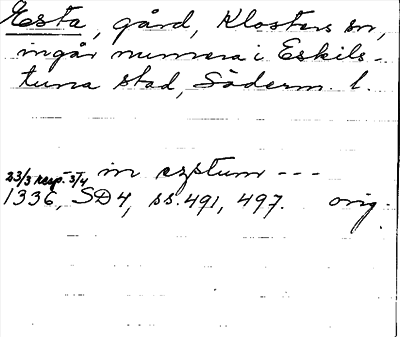 Esta, gård, Klosters sn,
ingår numera i Eskils-
tuna stad, Söderm. l.
in ezstum ---
23/3 resp. 3/4
1336, SD4, ss. 491, 497. orig.